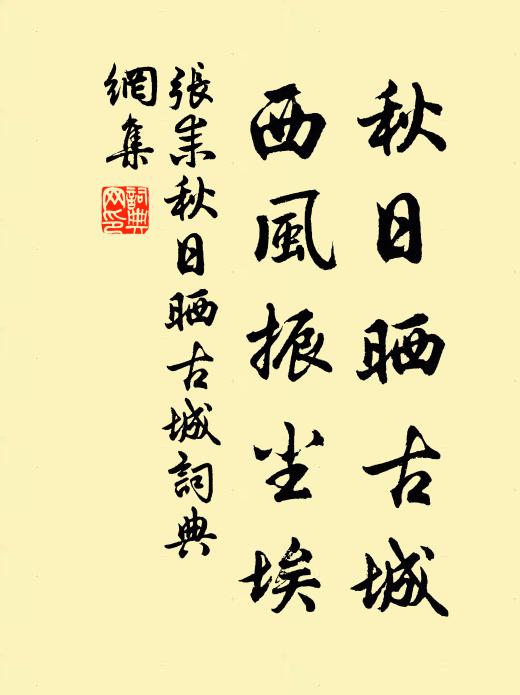 秋日晒古城
西風振尘埃
張耒秋日晒古城詞典
網集
詞典
网印